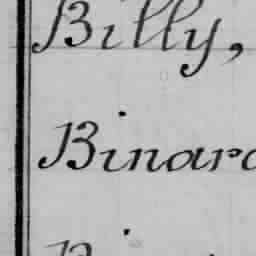 Billy,
Binard